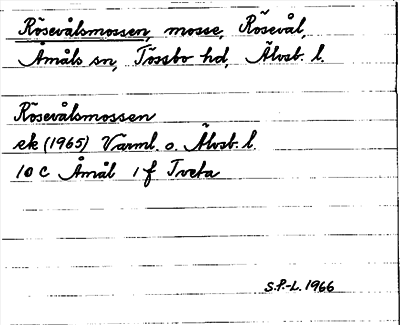 Rösevålsmossen, mosse, Rösevål,
Åmåls sn, Tössbo hd, Älvsb. l.
Rösevålsmossen
ek (1965) Värml. o. Älvsb. l.
10 C Åmål 1 f Tveta
S.P.-L. 1966